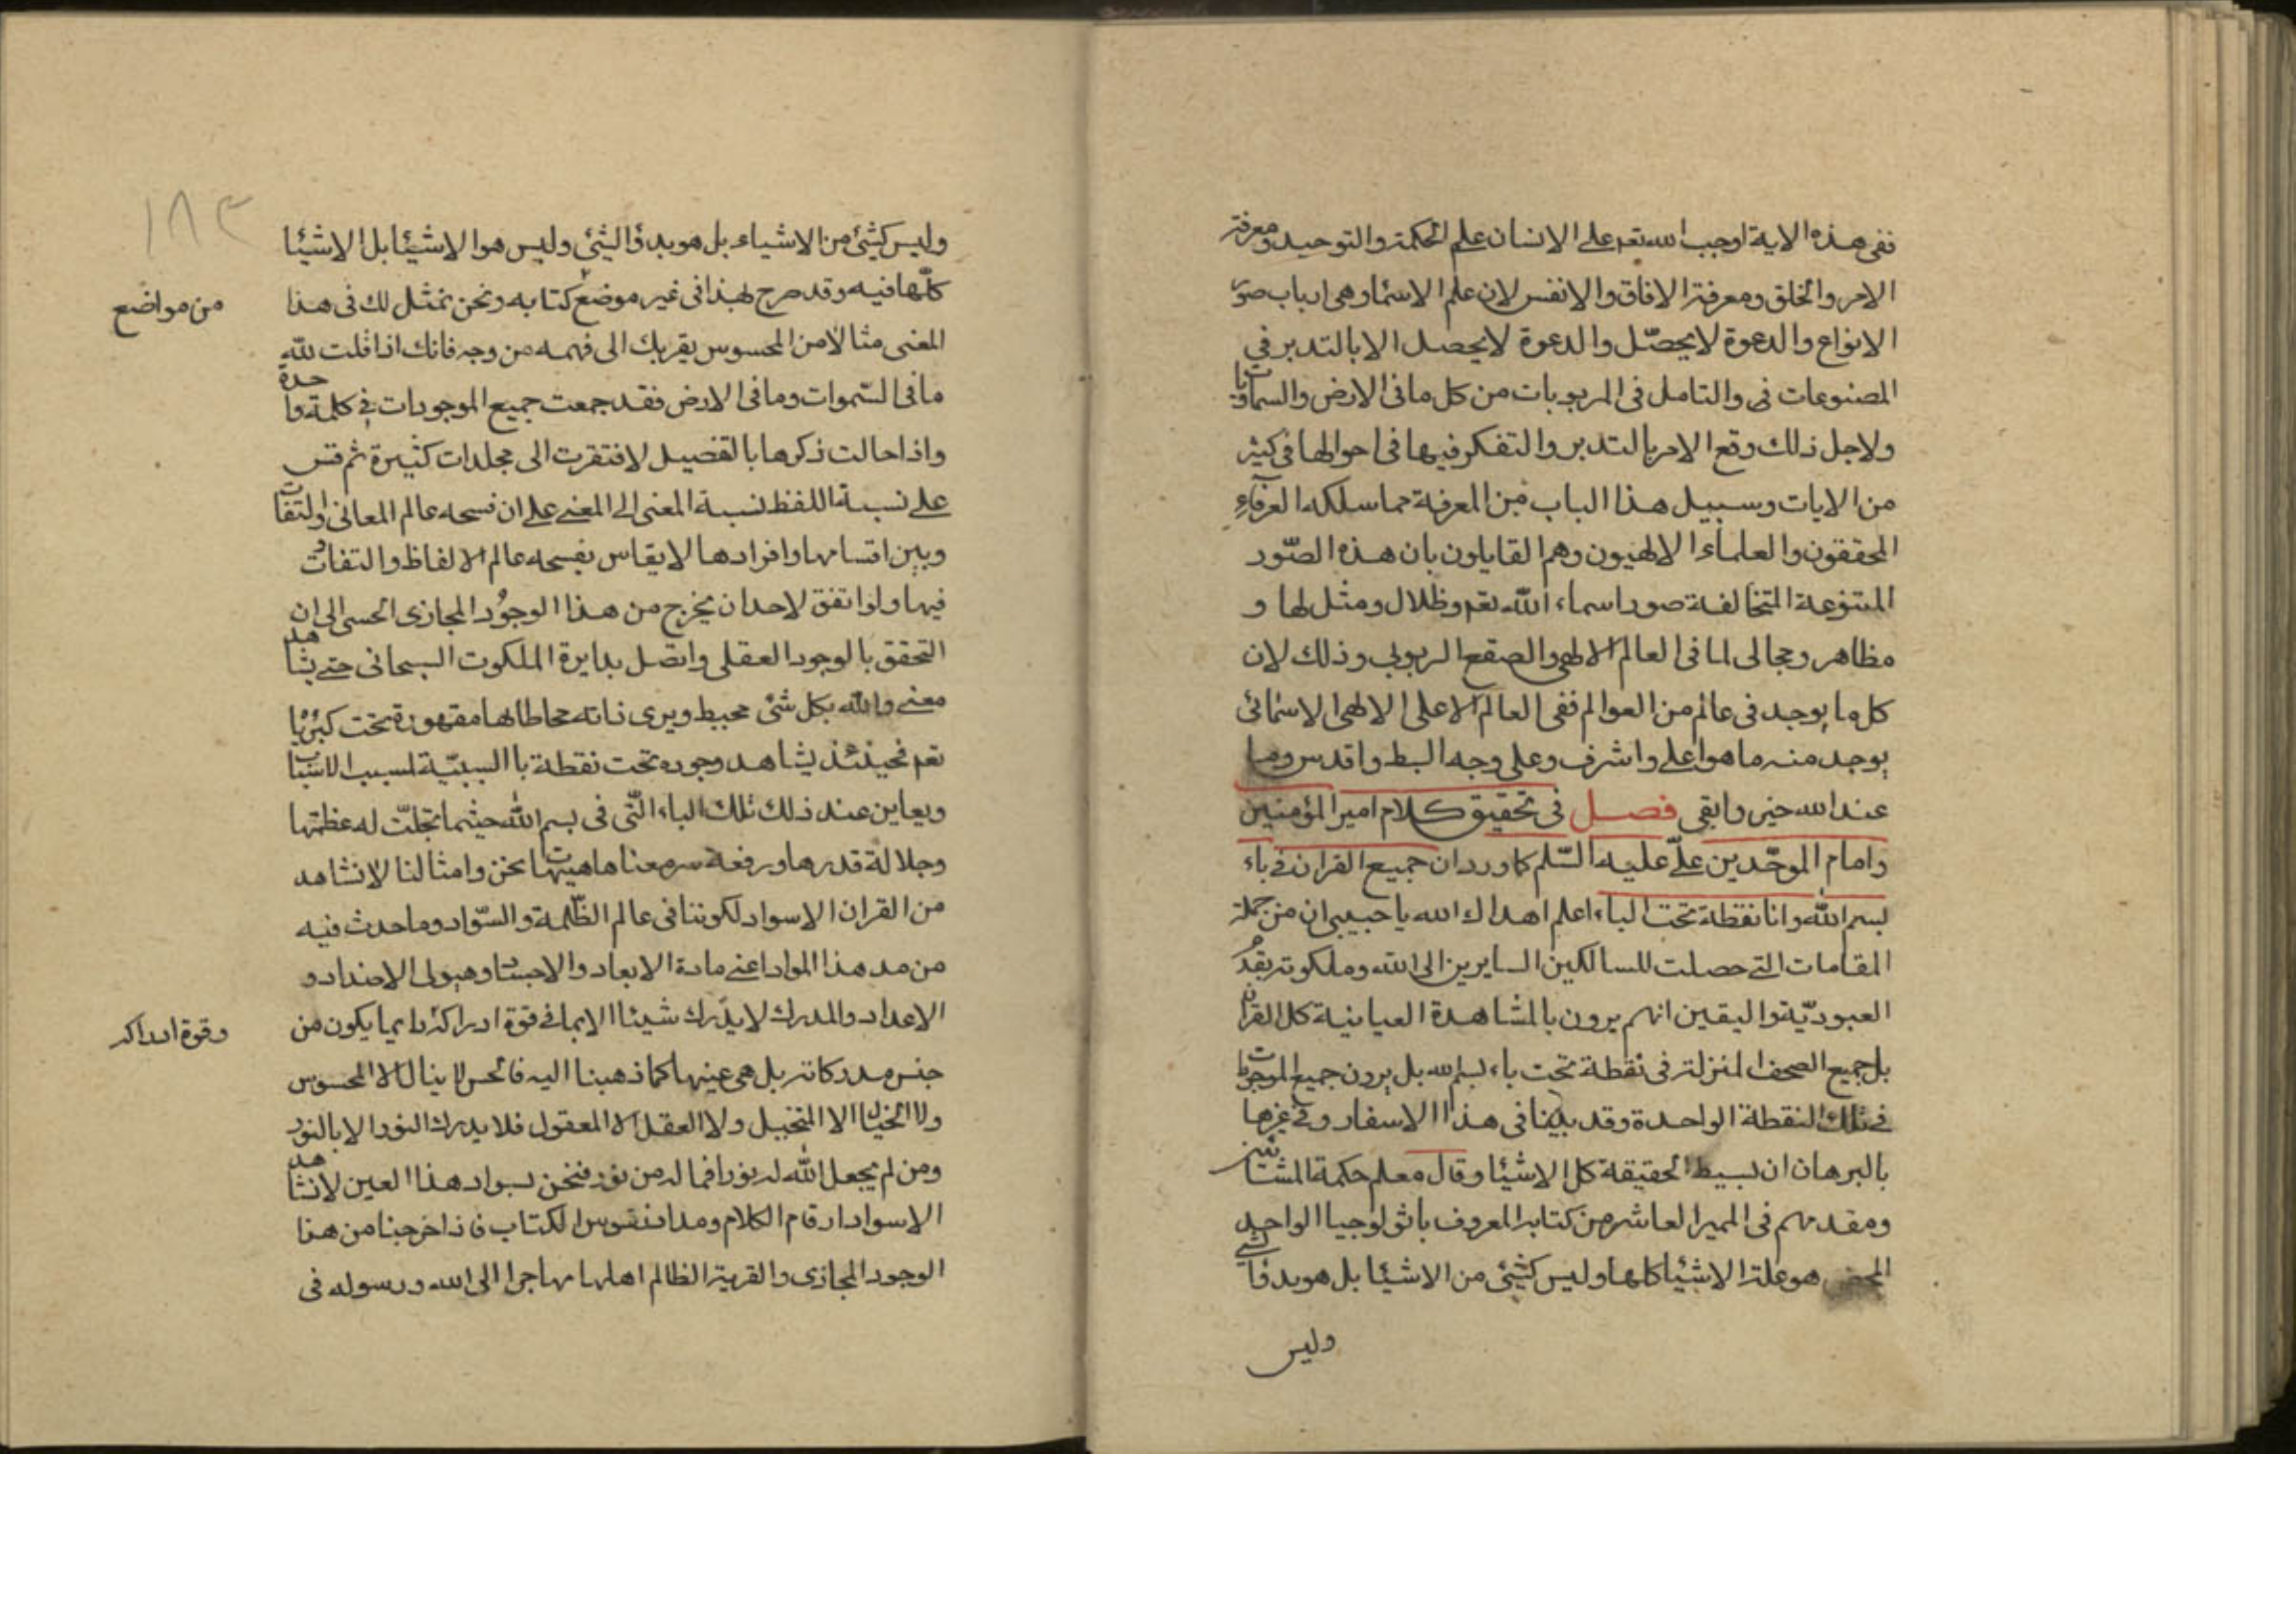 ففى هذه الاية اوجب الله تعم على الانسان علم الحكمة والتوحيد ومعرفة
الامر والخلق ومعرفة الافاق والانفس لان علم الاسما وهى ارباب صور
الانواع والدعوة لا يحصّل والدعوة لا يحصل الا بالتدبر في
المصنوعات فى والتامل فى المربوبات من كل ما فى الارض والسماويات
ولاجل ذلك وقع الامر بالتدبر والتفكر فيها فى احوالها فى كثير
من الايات وسبيل هذا الباب من المعرفة مما سلكه العرفاء
المحققون والعلماء الالهيون وهم القايلون بان هذه الصّور
المتنوعة المتخالفة صور اسماء الله تعم وظلال ومثل لها و
مظاهر ومجالى لما فى العالم الالهى والصقع الربوبى وذلك لان
كل ما يوجد فى عالم من العوالم ففى العالم الاعلى الالهى الاسمائى
يوجد منه ما هو اعلى واشرف وعلى وجه ابسط واقدس وما
عند الله خير وابقى فصل فى تحقيق كلام امير المؤمنين
وامام الموحّدين علىّ عليه السّلم كما ورد ان جميع القران فى باء
بسم الله وانا نقطة تحت الباء اعلم اهداك الله يا حبيبى ان من جملة
المقامات التى حصلت للسالكين السايرين الى الله وملكوته بقدم
العبوديّة واليقين انهم يرون بالمشاهدة العيانية كل القران
بل جميع الصحف المنزلة فى نقطة تحت باء بسم الله بل يرون جميع الموجودات
فى تلك النقطة الواحدة وقد بينا فى هذا الاسفار وفى غيرها
بالبرهان ان بسيط الحقيقة كل الاشيا وقال معلم حكمة المشائين
ومقدمهم فى الميمر العاشر من كتابه المعروف باثولوجيا الواحد
المحض هو علة الاشيا كلها وليس كشئ من الاشيا بل هو بدؤ الشئ
وليس
١٨٣
وليس كشئ من الاشياء بل هو بدؤ الشئ وليس هو الاشيا بل الاشيا
كلّها فيه وقد صرح بهذا فى غير موضع كتابه ونحن نمثل لك فى هذا
من مواضع
المعنى مثالا من المحسوس يقربك الى فهمه من وجه فانك اذا قلت لله
ما فى السّموات وما فى الارض فقد جمعت جميع الموجودات فى كلمة واحدة
واذا حالت ذكرها بالتفصيل لافتقرت الى مجلدات كثيرة ثم قس
على نسبة اللفظ نسبة المعنى الى المعنى على ان فسحه عالم المعانى والتفات
وبين اقسامها وافرادها لا يقاس بفسحه عالم الالفاظ والتفات
فيها ولو اتفق لاحد ان يخرج من هذا الوجود المجازى الحسى الى ان
التحقق بالوجود العقلى واتصل بدايرة الملكوت السبحانى حتى يشاهد
معنى والله بكل شئ محيط ويرى ذاته محاطا لها مقهورة تحت كبريا
تعم فحينئذ يشاهد وجوده تحت نقطة با السببيّة لسبب الاسباب
ويعاين عند ذلك تلك الباء الّتى فى بسم الله حيثما تجلّت له عظمتها
وجلالة قدرها ورفعة سر معناها هيهات نحن وامثالنا لا نشاهد
من القران الا سواد لكوننا فى عالم الظّلمة والسّواد وما حدث فيه
من مد هذا المواد اعنى مادة الابعاد والاجساد وهيولى الاضداد و
الاعداد والمدرك لا يدرك شيئا الا بما فى قوة ادراكه دايما يكون من
وقوة ادراكه
جنس مدركاته بل هى عينها كما ذهبنا اليه فالحس لا ينال الا المحسوس
ولا الخيال الا المتخيل ولا العقل الا المعقول فلا يدرك النور الا بالنور
ومن لم يجعل الله له نورا فما له من نور فنحن بسواد هذا العين لا نشاهد
الا سواد ارقام الكلام ومداد نقوس الكتاب فاذا خرجنا من هذا
الوجود المجازى والقرية الظالم اهلها مهاجرا الى الله ورسوله فى